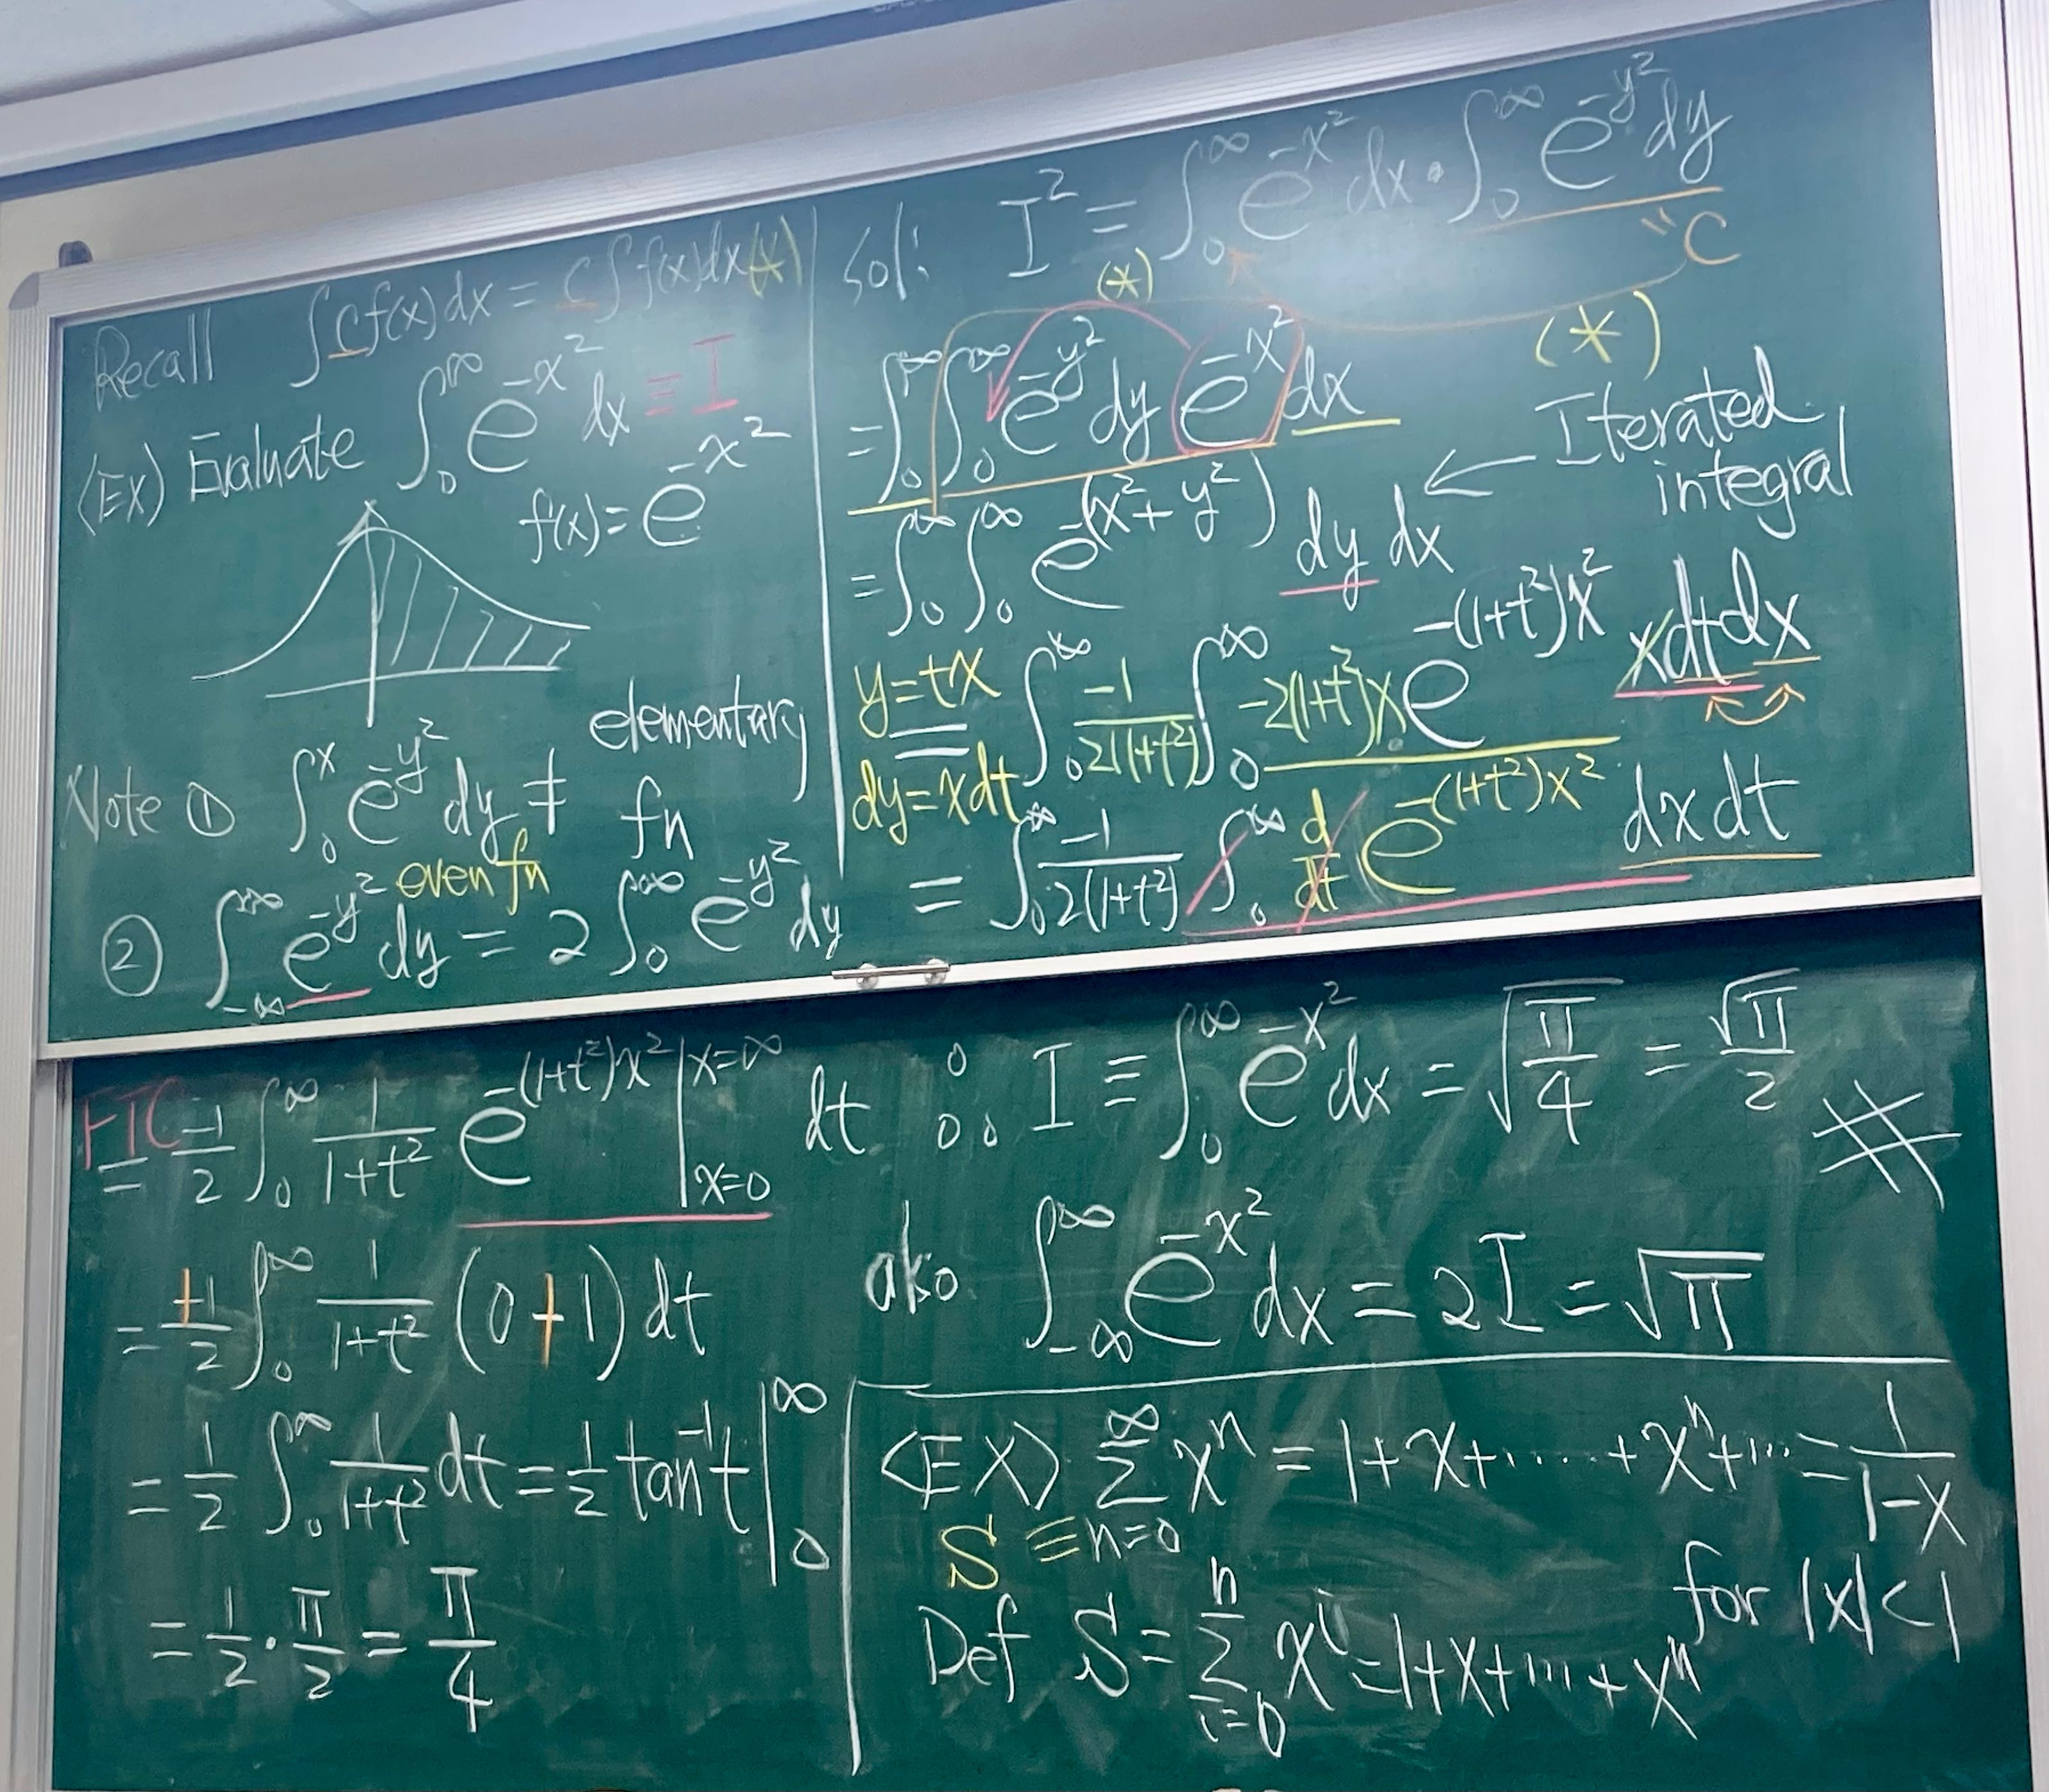 Recall ∫cf(x)dx = c∫f(x)dx (*)
(Ex) Evaluate ∫₀^∞ e^{-x²} dx ≡ I
f(x) = e^{-x²}
Note ① ∫₀^x e^{-y²} dy ≠ elementary fn
even fn
② ∫_{-∞}^∞ e^{-y²} dy = 2∫₀^∞ e^{-y²} dy
Sol: I² = ∫₀^∞ e^{-x²} dx · ∫₀^∞ e^{-y²} dy
" C
(*)
= ∫₀^∞ ∫₀^∞ e^{-y²} dy e^{-x²} dx
(*)
Iterated integral
= ∫₀^∞ ∫₀^∞ e^{-(x²+y²)} dy dx ←
y=tx
dy=xdt
= ∫₀^∞ -1/2(1+t²) ∫₀^∞ -2(1+t²)x e^{-(1+t²)x²} xdtdx
= ∫₀^∞ -1/2(1+t²) ∫₀^∞ d/dt e^{-(1+t²)x²} dxdt
FTC
= -1/2 ∫₀^∞ 1/(1+t²) e^{-(1+t²)x²} |_{x=0}^{x=∞} dt
= +1/2 ∫₀^∞ 1/(1+t²) (0+1) dt
= 1/2 ∫₀^∞ 1/(1+t²) dt = 1/2 tan⁻¹t |₀^∞
= 1/2 · π/2 = π/4
∴ I ≡ ∫₀^∞ e^{-x²} dx = √(π/4) = √π/2 #
also ∫_{-∞}^∞ e^{-x²} dx = 2I = √π
<EX> ∑_{n=0}^∞ xⁿ = 1+x+.....+xⁿ+... = 1/(1-x)
S ≡
for |x|<1
Def S = ∑_{i=0}^n x^i = 1+x+...+xⁿ